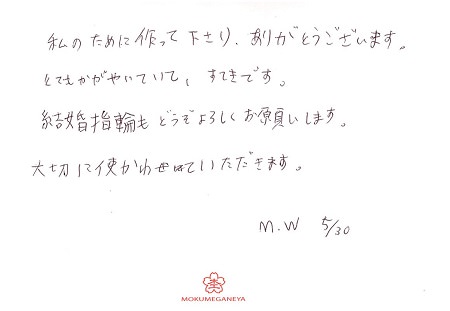 私のために作って下さり、ありがとうございます。
とてもかがやいていて、すてきです。
結婚指輪もどうぞよろしくお願いします。
大切に使かわせていただきます。
M.W 5/30
MOKUMEGANEYA